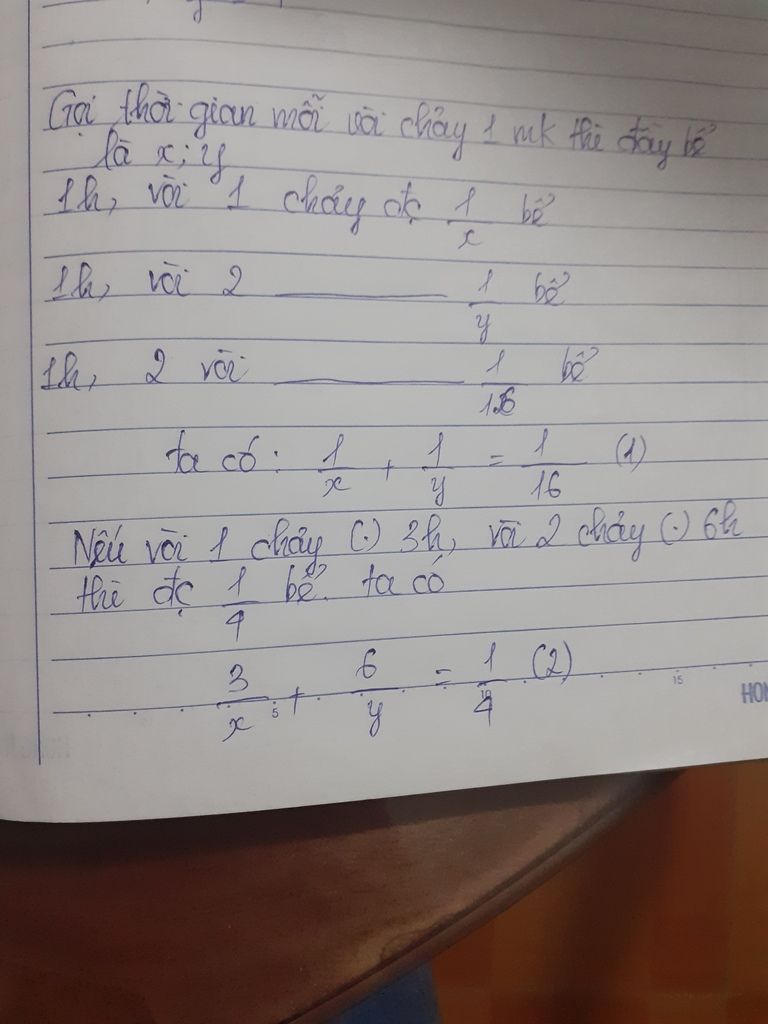 Gọi thời gian mỗi vòi chảy 1 mk thì đầy bể
là x; y
1h, vòi 1 chảy đc 1/x bể
1h, vòi 2 ——— 1/y bể
1h, 2 vòi ——— 1/16 bể
ta có: 1/x + 1/y = 1/16 (1)
Nếu vòi 1 chảy (.) 3h, vòi 2 chảy (.) 6h
thì đc 1/4 bể. ta có
3/x + 6/y = 1/4 (2)
5 10 15